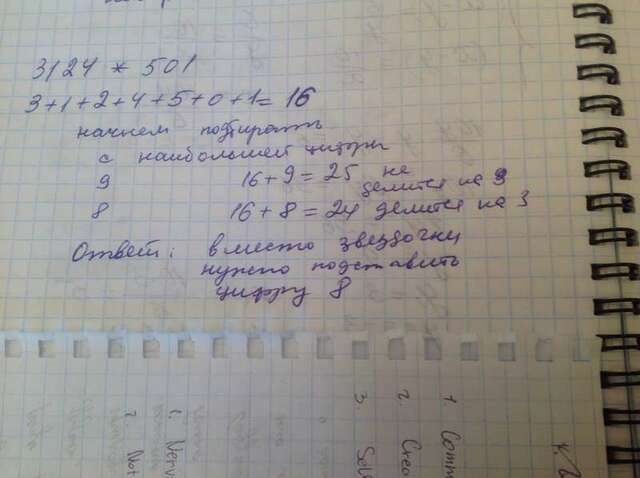 3124 * 501
3+1+2+4+5+0+1=16
начнем подбирать
с наибольшей цифры
9 16+9=25 не делится на 3
8 16+8=24 делится на 3
Ответ: вместо звездочки
нужно подставить
цифру 8
1. Comm
2. Crea
3. Sel
1. Nerv
2. Not